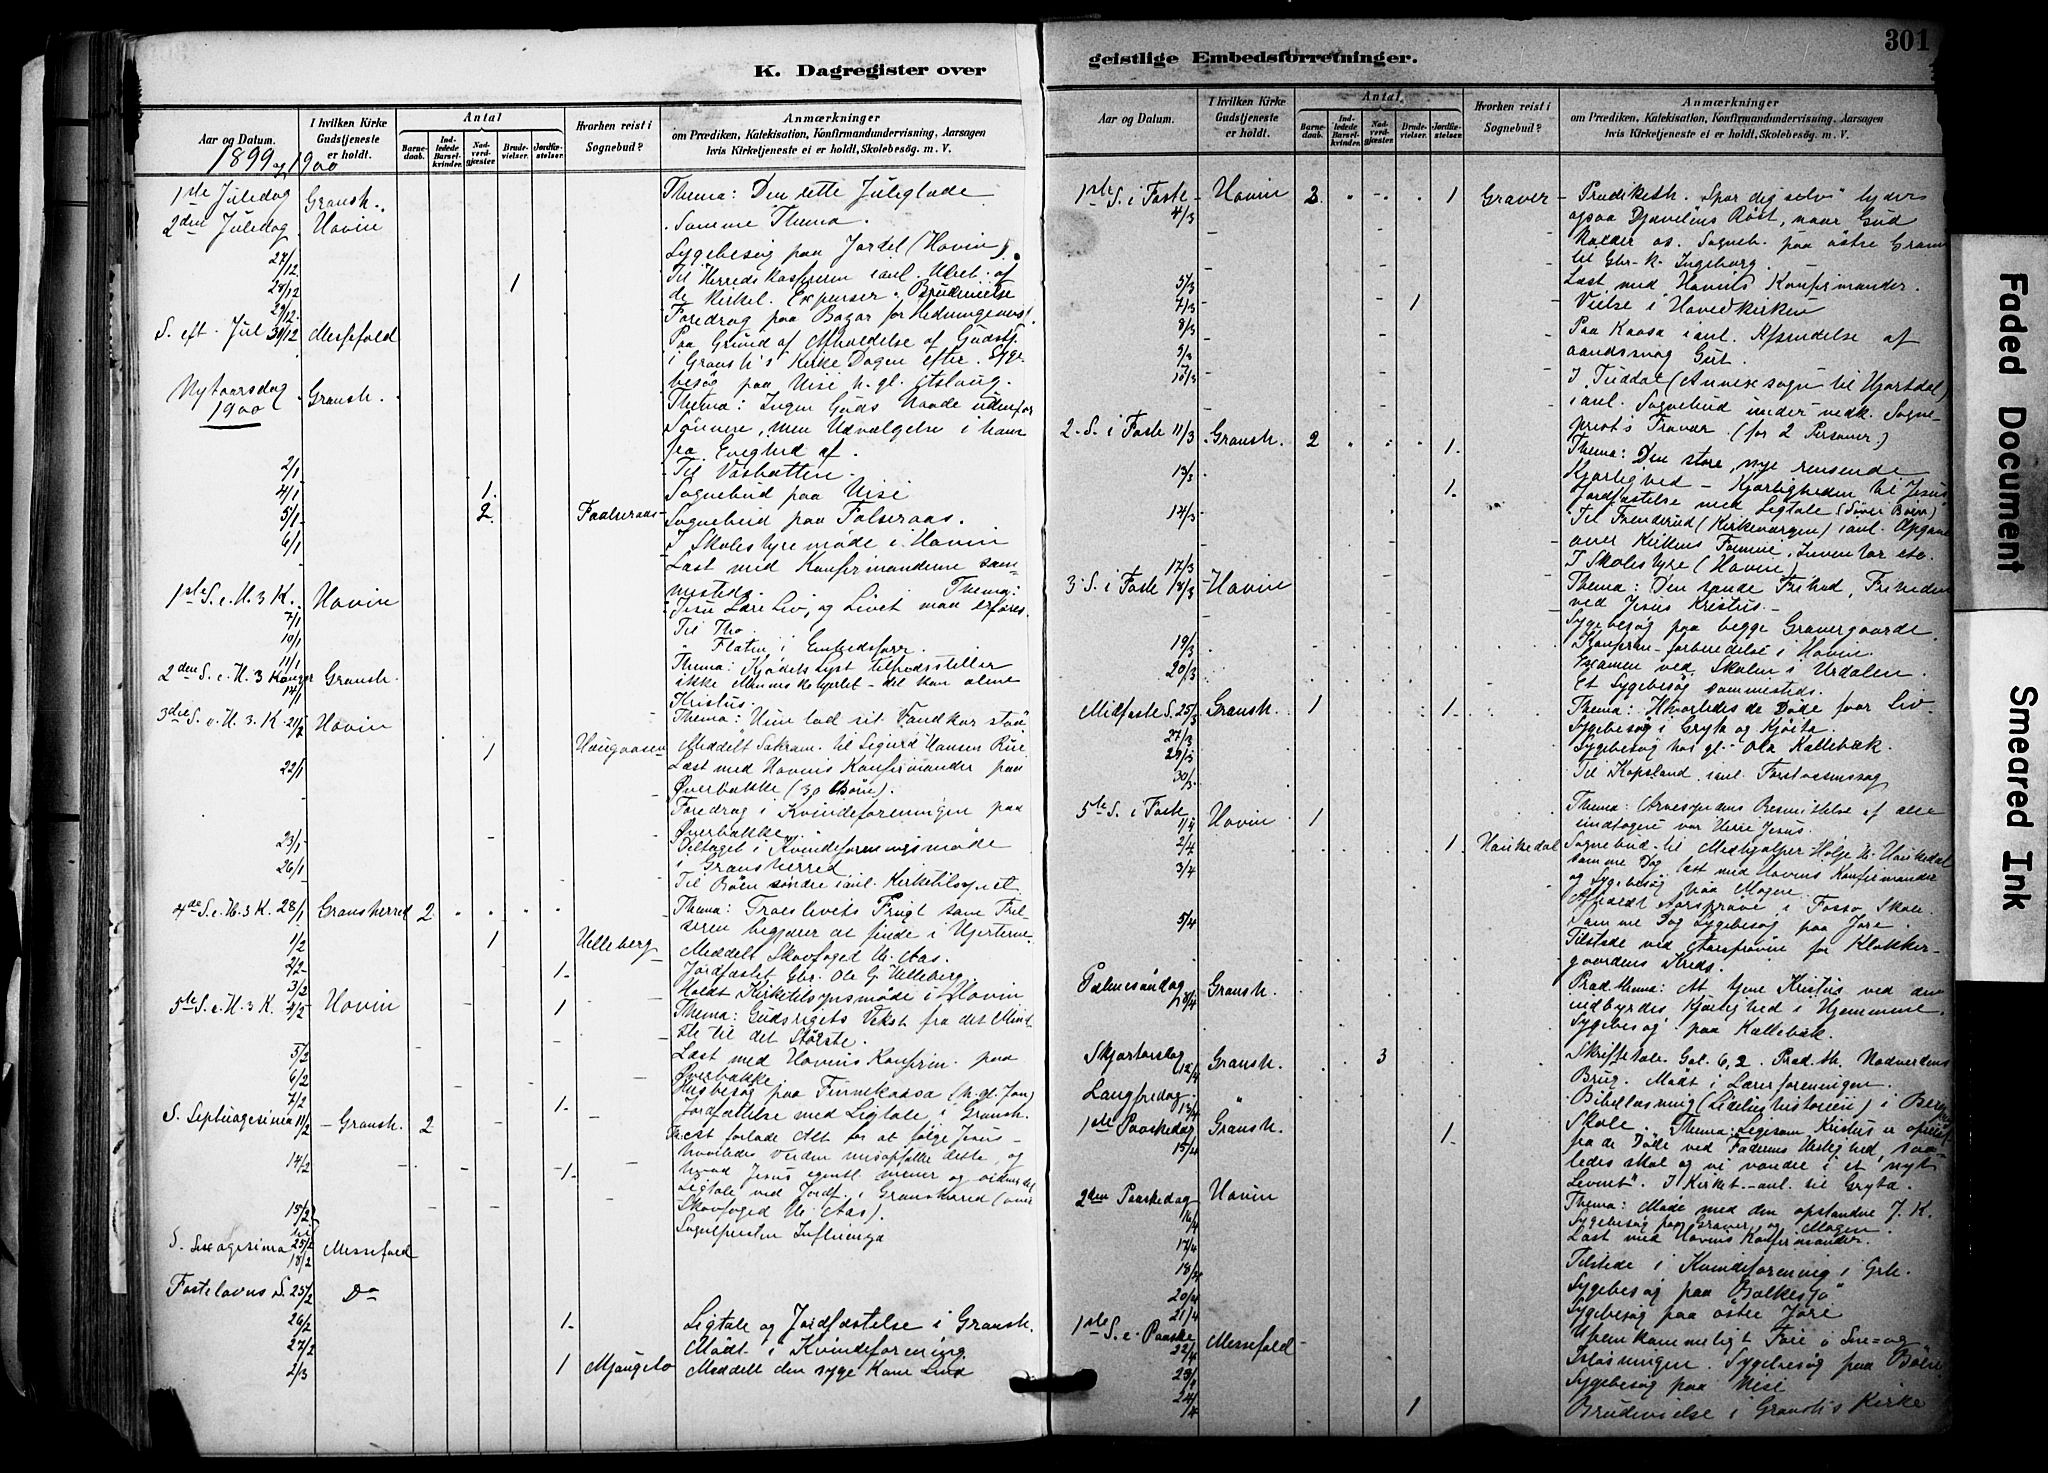 K. Dagregister over
Aar og Datum.
I hvilken Kirke Gudstjeneste er holdt.
Antal
Barne-daab.
Ind-ledede Barsel-kvinder.
Nad-verd-gjæster.
Brude-vielser.
Jordfæ-stelser.
Hvorhen reist i Sognebud?
Anmærkninger
om Prædiken, Katekisation, Konfirmandundervisning, Aarsagen
hvis Kirketjeneste ei er holdt, Skolebesøg. m. V.
1899 og 1900
1ste Juledag Gransh. Thema: Den rette Juleglæde
2den Juledag Hovin Samme Thema.
27/12 Sygebesøg paa Jordet (Hovin).
28/12 1 Til Herredskassereren i anl. Udbet. af
de kirkel. Expenser. Brudevielse
29/12 Foredrag paa Bazar for Hedningemis.
S. eft. Jul 31/12 Messefald Paa Grund af Afholdelse af Gudstj.
i Gransh's Kirke Dagen efter. Syge-
besøg paa Visi h. gl. Aslaug.
Nytaarsdag 1900 Gransh. Thema: Ingen Guds Naade udenfor
Sønnen, men Udvælgelse i ham
fra Evighed af.
2/1 Til Vasbotten.
4/1 1 Sognebud paa Visi
5/1 2 Faalseraas Sognebud paa Folseraas.
6/1 I Skolestyremøde i Hovin
Læst med Konfirmanderne sam-
mesteds. Thema:
1ste S. e. H. 3 K. 7/1 Hovin Jesu Lære Liv, og Livet maa erfares.
10/1 Til Tho
11/1 " Flatin i Embedsforr.
2den S. e. H. 3 Konger 14/1 Gransh. Thema: Kjødets Lyst tilfredsstiller
ikke Menneskehjertet - det kan alene
Kristus.
3die S. e. H. 3 K. 21/2 Hovin Thema: Hun lod sit Vandkar staa
1 Haugaasen Meddelt Sakram. til Sigurd Hansen Rue
22/1 Læst med Hovins Konfirmander paa
Øverbakke (30 Børn).
Foredrag i Kvindeforeningen paa
Øverbakke.
23/1 Deltaget i Kvindeforeningsmøde
26/1 i Gransherred
Til Bøen søndre i anl. Kirketilsynet
4de S. e. H. 3 K. 28/1 Gransherred 2 Thema: Troeslivets Frugt som Frel-
seren begjærer at finde i Hjerterne.
1/2 1 Helleberg Meddelt Skovfoged H. Aas.
2/2 1 Jordfæstet Gbr. Ole G. Helleberg.
3/2 Holdt Kirketilsynsmøde i Hovin
5te S. e. H. 3 K. 4/2 Hovin 1 Thema: Gudsrigets Vekst fra det Mind-
ste til det Største.
5/2 Læst med Hovins Konfirm. paa
6/2 Øverbakke
7/2 Husbesøg paa Finnekaasa (h. gl. Jon)
1 Jordfæstelse med Ligtale i Gransh.
S. Septuagesima 11/2 Gransh. 2 Thema forlade Alt for at følge Jesus -
hvorledes Verden misopfatter dette, og
14/2 1 hvad Jesus egentl. mener
Ligtale ved Jordf. i Gransherred (over
Skovfoged H. Aas).
15/2 til 25/2 Sognepresten Influenza
S. Sexagesima 18/2 Messefald
Fastelavns S. 25/2 Do
26/2 1 Ligtale og Jordfæstelse i Gransh.
27/2 Mødt i Kvindeforening
2/3 1 Mjaugeto Meddelt den syge Kone Lind
geistlige Embedsforretninger.
301
Aar og Datum.
I hvilken Kirke Gudstjeneste er holdt.
Antal
Barne-daab.
Ind-ledede Barsel-kvinder.
Nad-verd-gjæster.
Brude-vielser.
Jordfæ-stelser.
Hvorhen reist i Sognebud?
Anmærkninger
om Prædiken, Katekisation, Konfirmandundervisning, Aarsagen
hvis Kirketjeneste ei er holdt, Skolebesøg. m. V.
1ste S. i Faste 4/3 Hovin 3 1 Graver Prædiketh. "Spar dig selv" lyder
ogsaa Djævelens Røst, naar Gud
kalder os. Sogneb. paa østre Graver
til Gbr. k. Ingeborg.
5/3 Læst med Hovins Konfirmander.
7/3 1 Vielse i Hovedkirken
8/3 Paa Kaasa i anl. Afsendelse af
9/3 aandssvag Gut.
10/3 I Tuddal (Annexsogn til Hjartdal)
i anl. Sognebud under vedk. Sogne-
prests Fravær. (for 2 Personer.)
2. S. i Faste 11/3 Gransh. 2 1 Thema: Den store, nye rensende
13/3 Kjærlighed - Kjærligheden til Jesus
1 Jordfæstelse med Ligtale
14/3 Til Fenderud (Kirkeværgen) i anl. Opgave
over Kirkens Formue, Inventar etc.
17/3 I Skolestyre (Hovin)
3 S. i Faste 18/3 Hovin Thema: Den sande Frihed, Friheden
ved Jesus Kristus.
Sygebesøg paa begge Gravergaarde.
19/3 Konfirm.forberedelse i Hovin.
20/3 Examen ved Skolen i Urdalen.
Et Sygebesøg sammesteds.
Midfaste S. 25/3 Gransh. 1 1 Thema: Hvorledes de Døde faar Liv.
27/3 Sygebesøg i Gryta og Kjøita.
29/3 Sygebesøg hos gl. Ola Kallebæk.
30/3 Til Kopsland i anl. Forstvæsenssag
5te S. i Faste 1/4 Hovin 1 Thema: Arvesyndens Besmittelse af alle
undtagen vor Herre Jesus.
2/4 1 Haukedal Sognebud til Medhjælper Hølje H. Haukedal
3/4 samme Dag læst med Hovins Konfirmander
og Sygebesøg paa Mogen.
Afholdt Aarsprøve i Fosso Skole.
5/4 Samme Dag Sygebesøg paa Jøre.
Tilstede ved Aarsprøven for Klokker-
gaardens Kreds.
Palmesøndag 8/4 Gransh. Præd.thema: At tjene Kristus ved den
indbyrdes Kjærlighed i Hjemmene.
Sygebesøg paa Kallebæk.
Skjærtorsdag 12/4 Gransh. 3 Skriftetale Gal. 6,2. Præd. th. Nadverdens
Brug. Mødt i Lærerforeningen.
Langfredag 13/4 " Bibellæsning (Lidelseshistorien) i Berge
1ste Paaskedag 15/4 Gransh. 1 Skole. Thema: Ligesom Kristus er opreist
fra de Døde ved Faderens Herlighed, saa-
ledes skal og vi vandre i et nyt
Levnet". I Kirket. anl. til Gryta.
2den Paaskedag 16/4 Hovin Thema: Møde med den opstandne J. K.
Sygebesøg paa Graver og Mogen.
17/4 Læst med Hovins Konfirmander.
18/4 Tilstede i Kvindeforening i Grh.
20/4 Sygebesøg paa Bolkesjø
21/4 Sygebesøg paa østre Jøre
1ste S. e. Paaske 22/4 Messefald Ufremkommeligt Føre Sne- og
Isløsningen. Sygebesøg paa Bøen
23/4 Sygebesøg paa Visi
24/4 1 Brudevielse i Gransh's Kirke
Faded Document
Smeared Ink